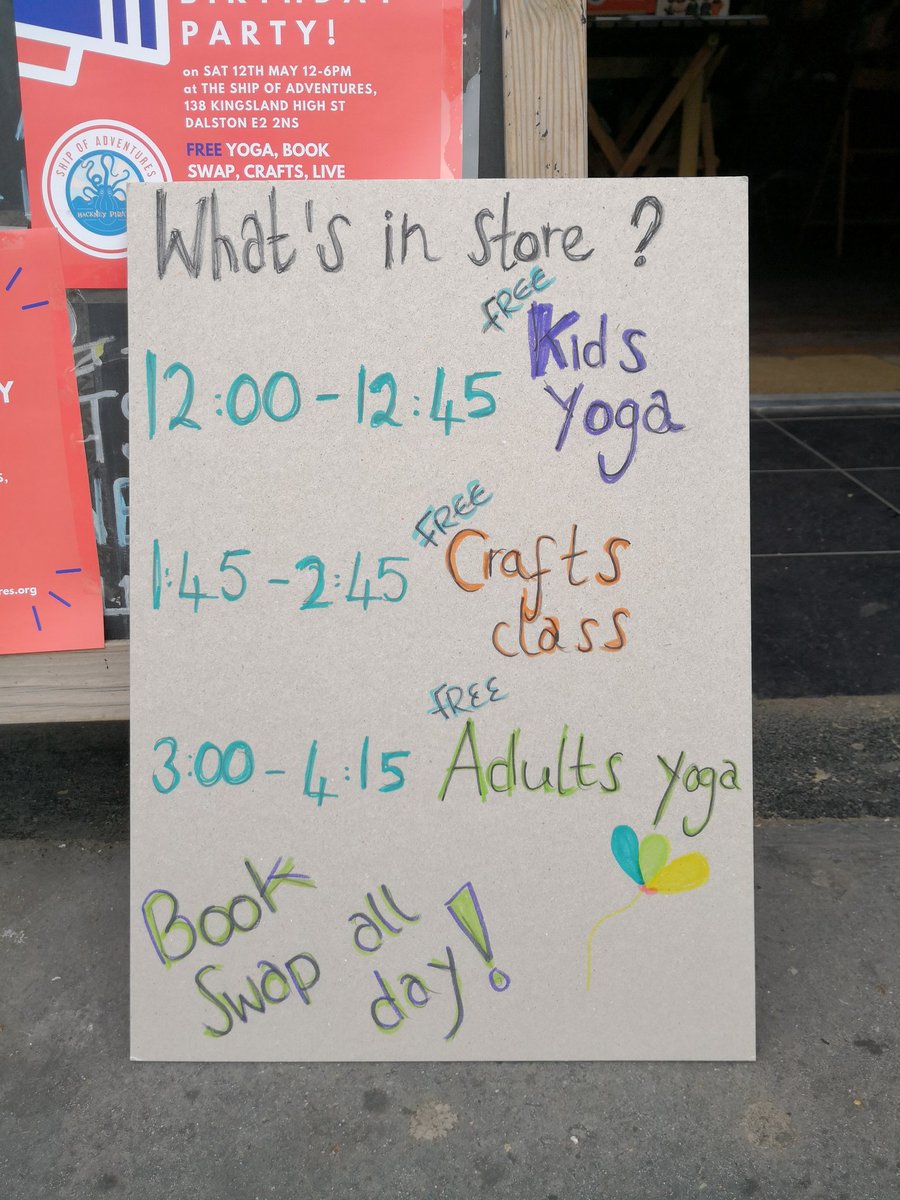 PARTY!
on SAT 12TH MAY 12-6PM
at THE SHIP OF ADVENTURES,
138 KINGSLAND HIGH ST
DALSTON E2 2NS
FREE YOGA, BOOK
SWAP, CRAFTS, LIVE
SHIP OF ADVENTURES
HACKNEY
What's in store ?
FREE
Kids
12:00 - 12:45
Yoga
FREE
Crafts
1:45 - 2:45
class
FREE
3:00 - 4:15 Adults Yoga
Book
Swap all
day!